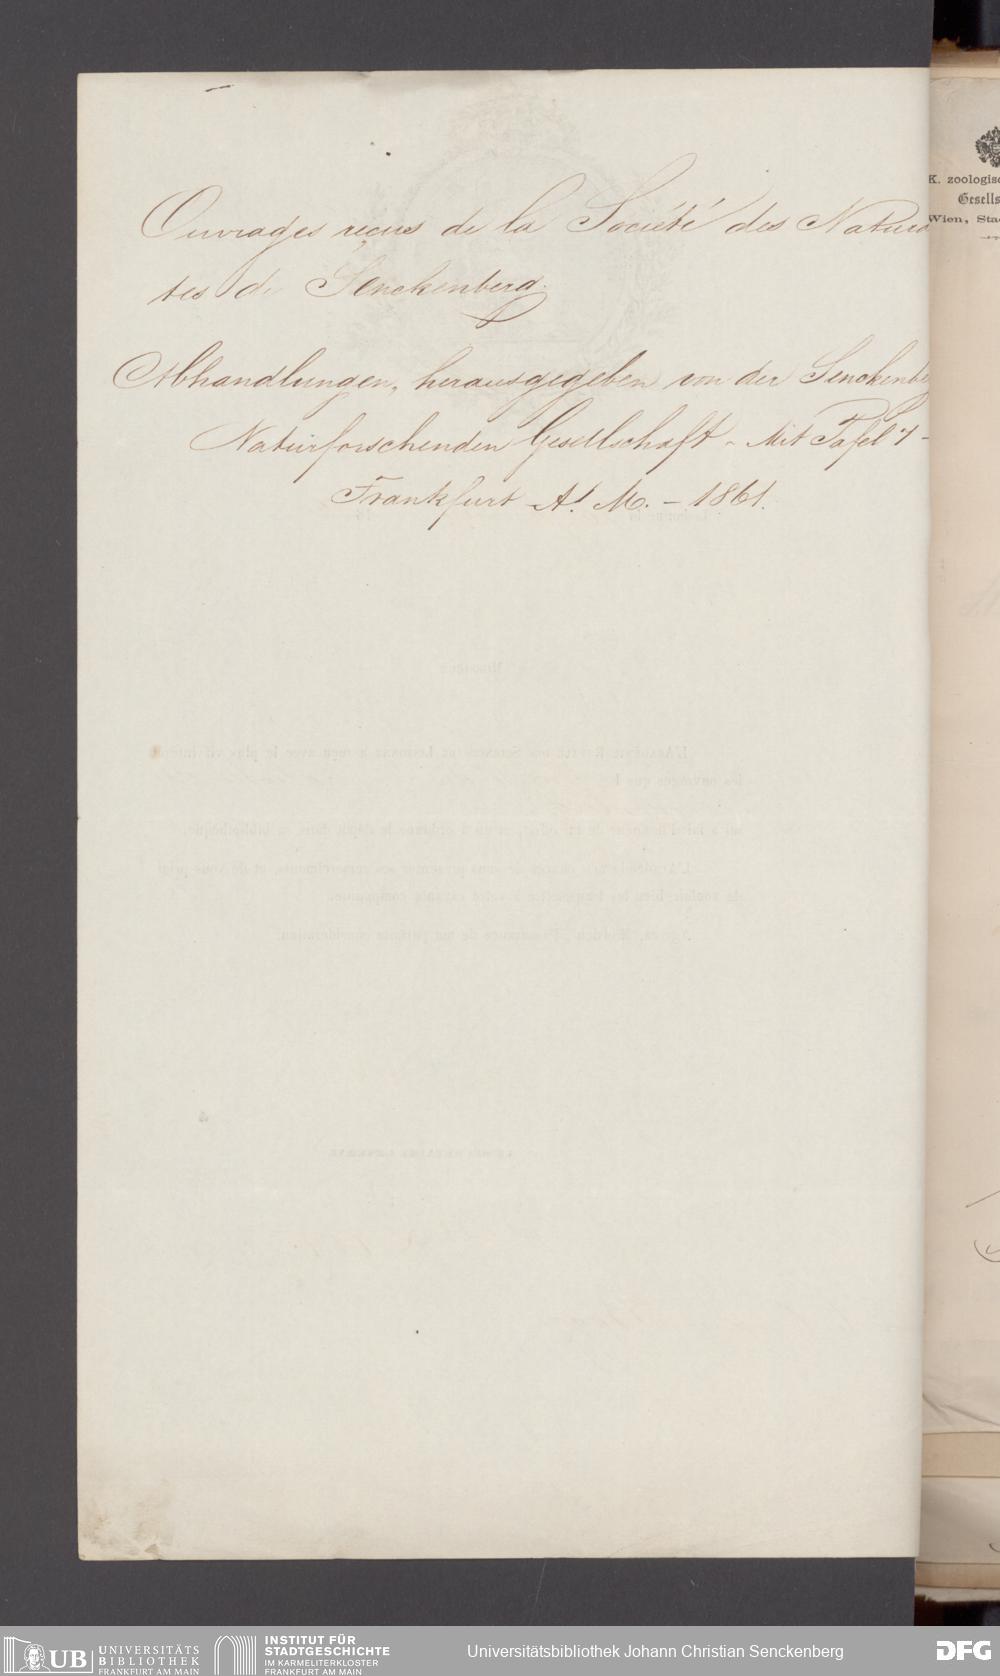 Ouvrages reçus de la Société des Natura
tes de Senckenberg.
Abhandlungen, herausgegeben von der Senckenbe
Naturforschenden Gesellschaft - Mit Tafel 7 -
Frankfurt A. M. - 1861.
K. zoologisc
Gesells
Wien, Sta
UB UNIVERSITÄTS
BIBLIOTHEK
FRANKFURT AM MAIN
INSTITUT FÜR
STADTGESCHICHTE
IM KARMELITERKLOSTER
FRANKFURT AM MAIN
Universitätsbibliothek Johann Christian Senckenberg
DFG